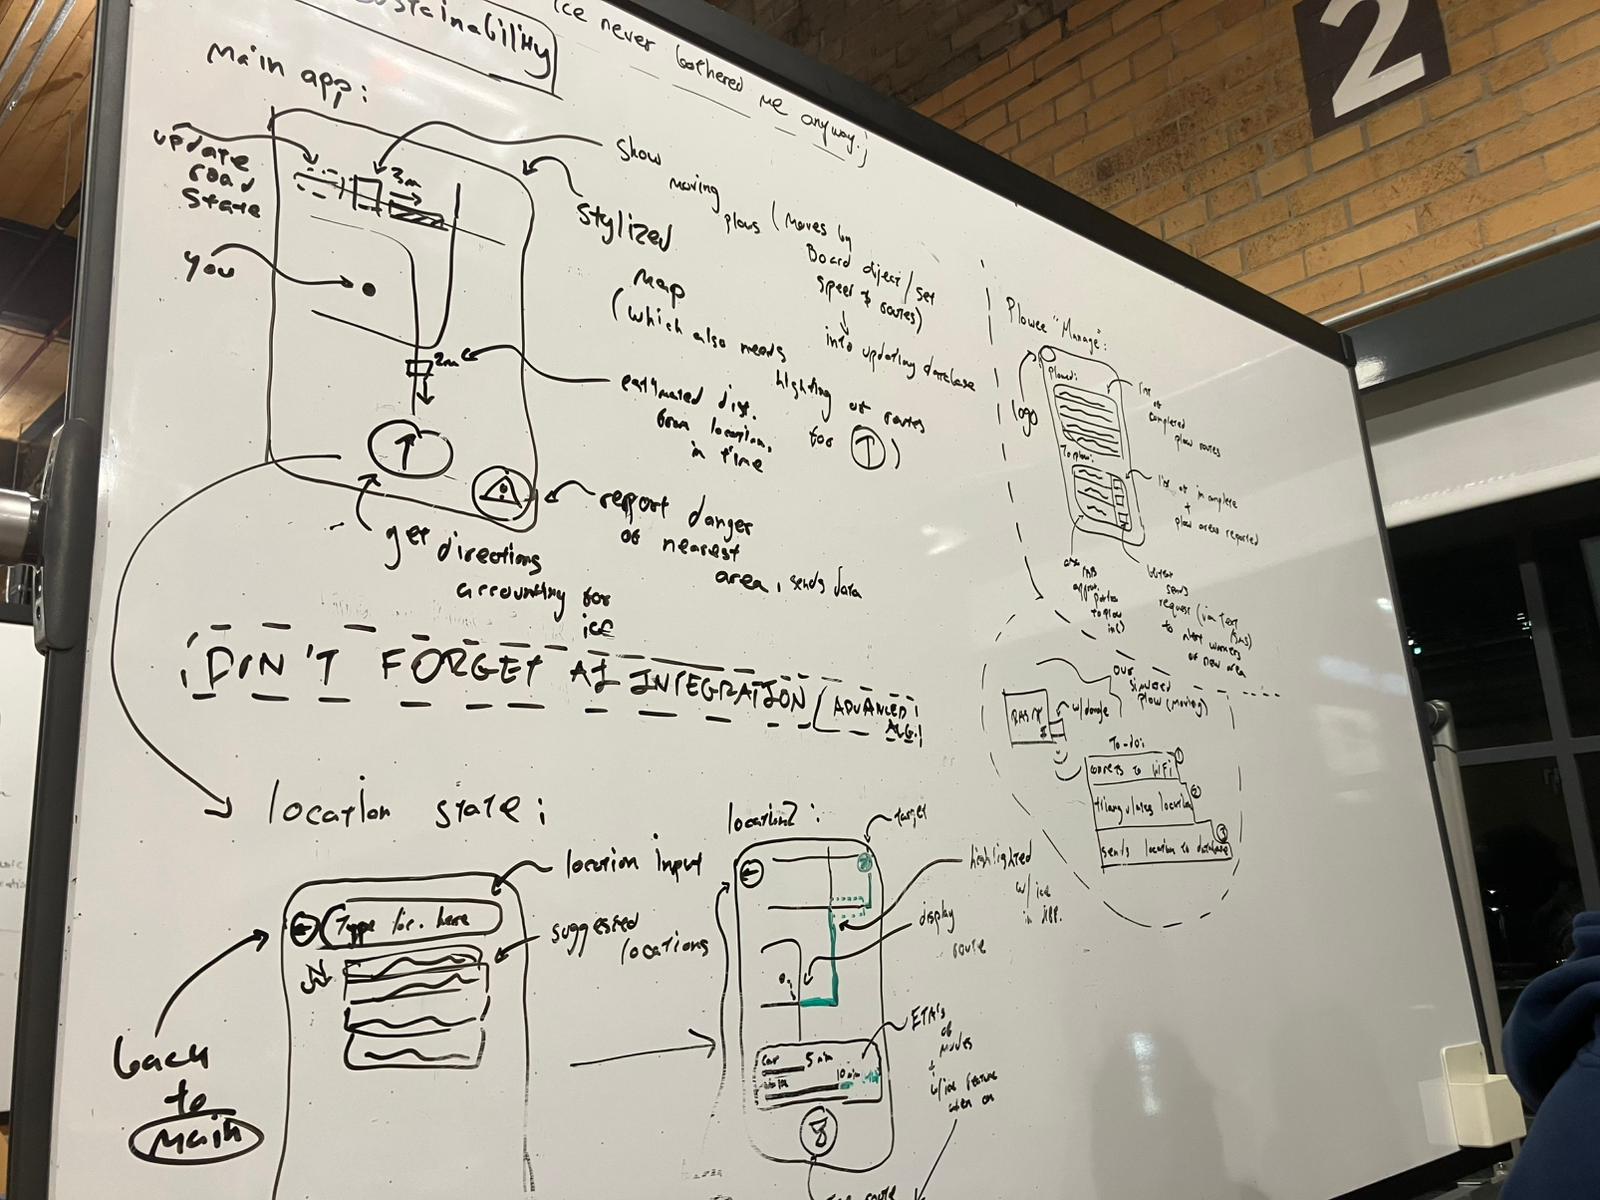 Sustainability
Ice never bothered me anyway:)
2
Main app:
update
road
state
you
3m
show
moving
plows (Moves by
Board object/set
speed & routes)
into updating database
stylized
map
(which also needs
highlighting of routes
for ↑)
2m
estimated dist.
from location,
in time
↑
report danger
of nearest
area, sends data
get directions
accounting for
ice
DON'T FORGET AI INTEGRATION (ADVANCED
ALG.)
Plowee "Manage":
logo
Plowed:
list
of
completed
plow routes
To plow:
list of incomplete
+
plow areas reported
sends
request (via text
to alert workers
of new area
our
simulated
plow (moving)
w/dongle
To-do:
connects to WiFi
1
triangulates location
2
sends location to database
3
location state:
location input
Type loc. here
suggested
locations
back
to
main
location2:
target
highlighted
w/ ice
in app.
display
route
ETA's
of
modes
+
w/ice feature
when on
car 5 min
10 min
route